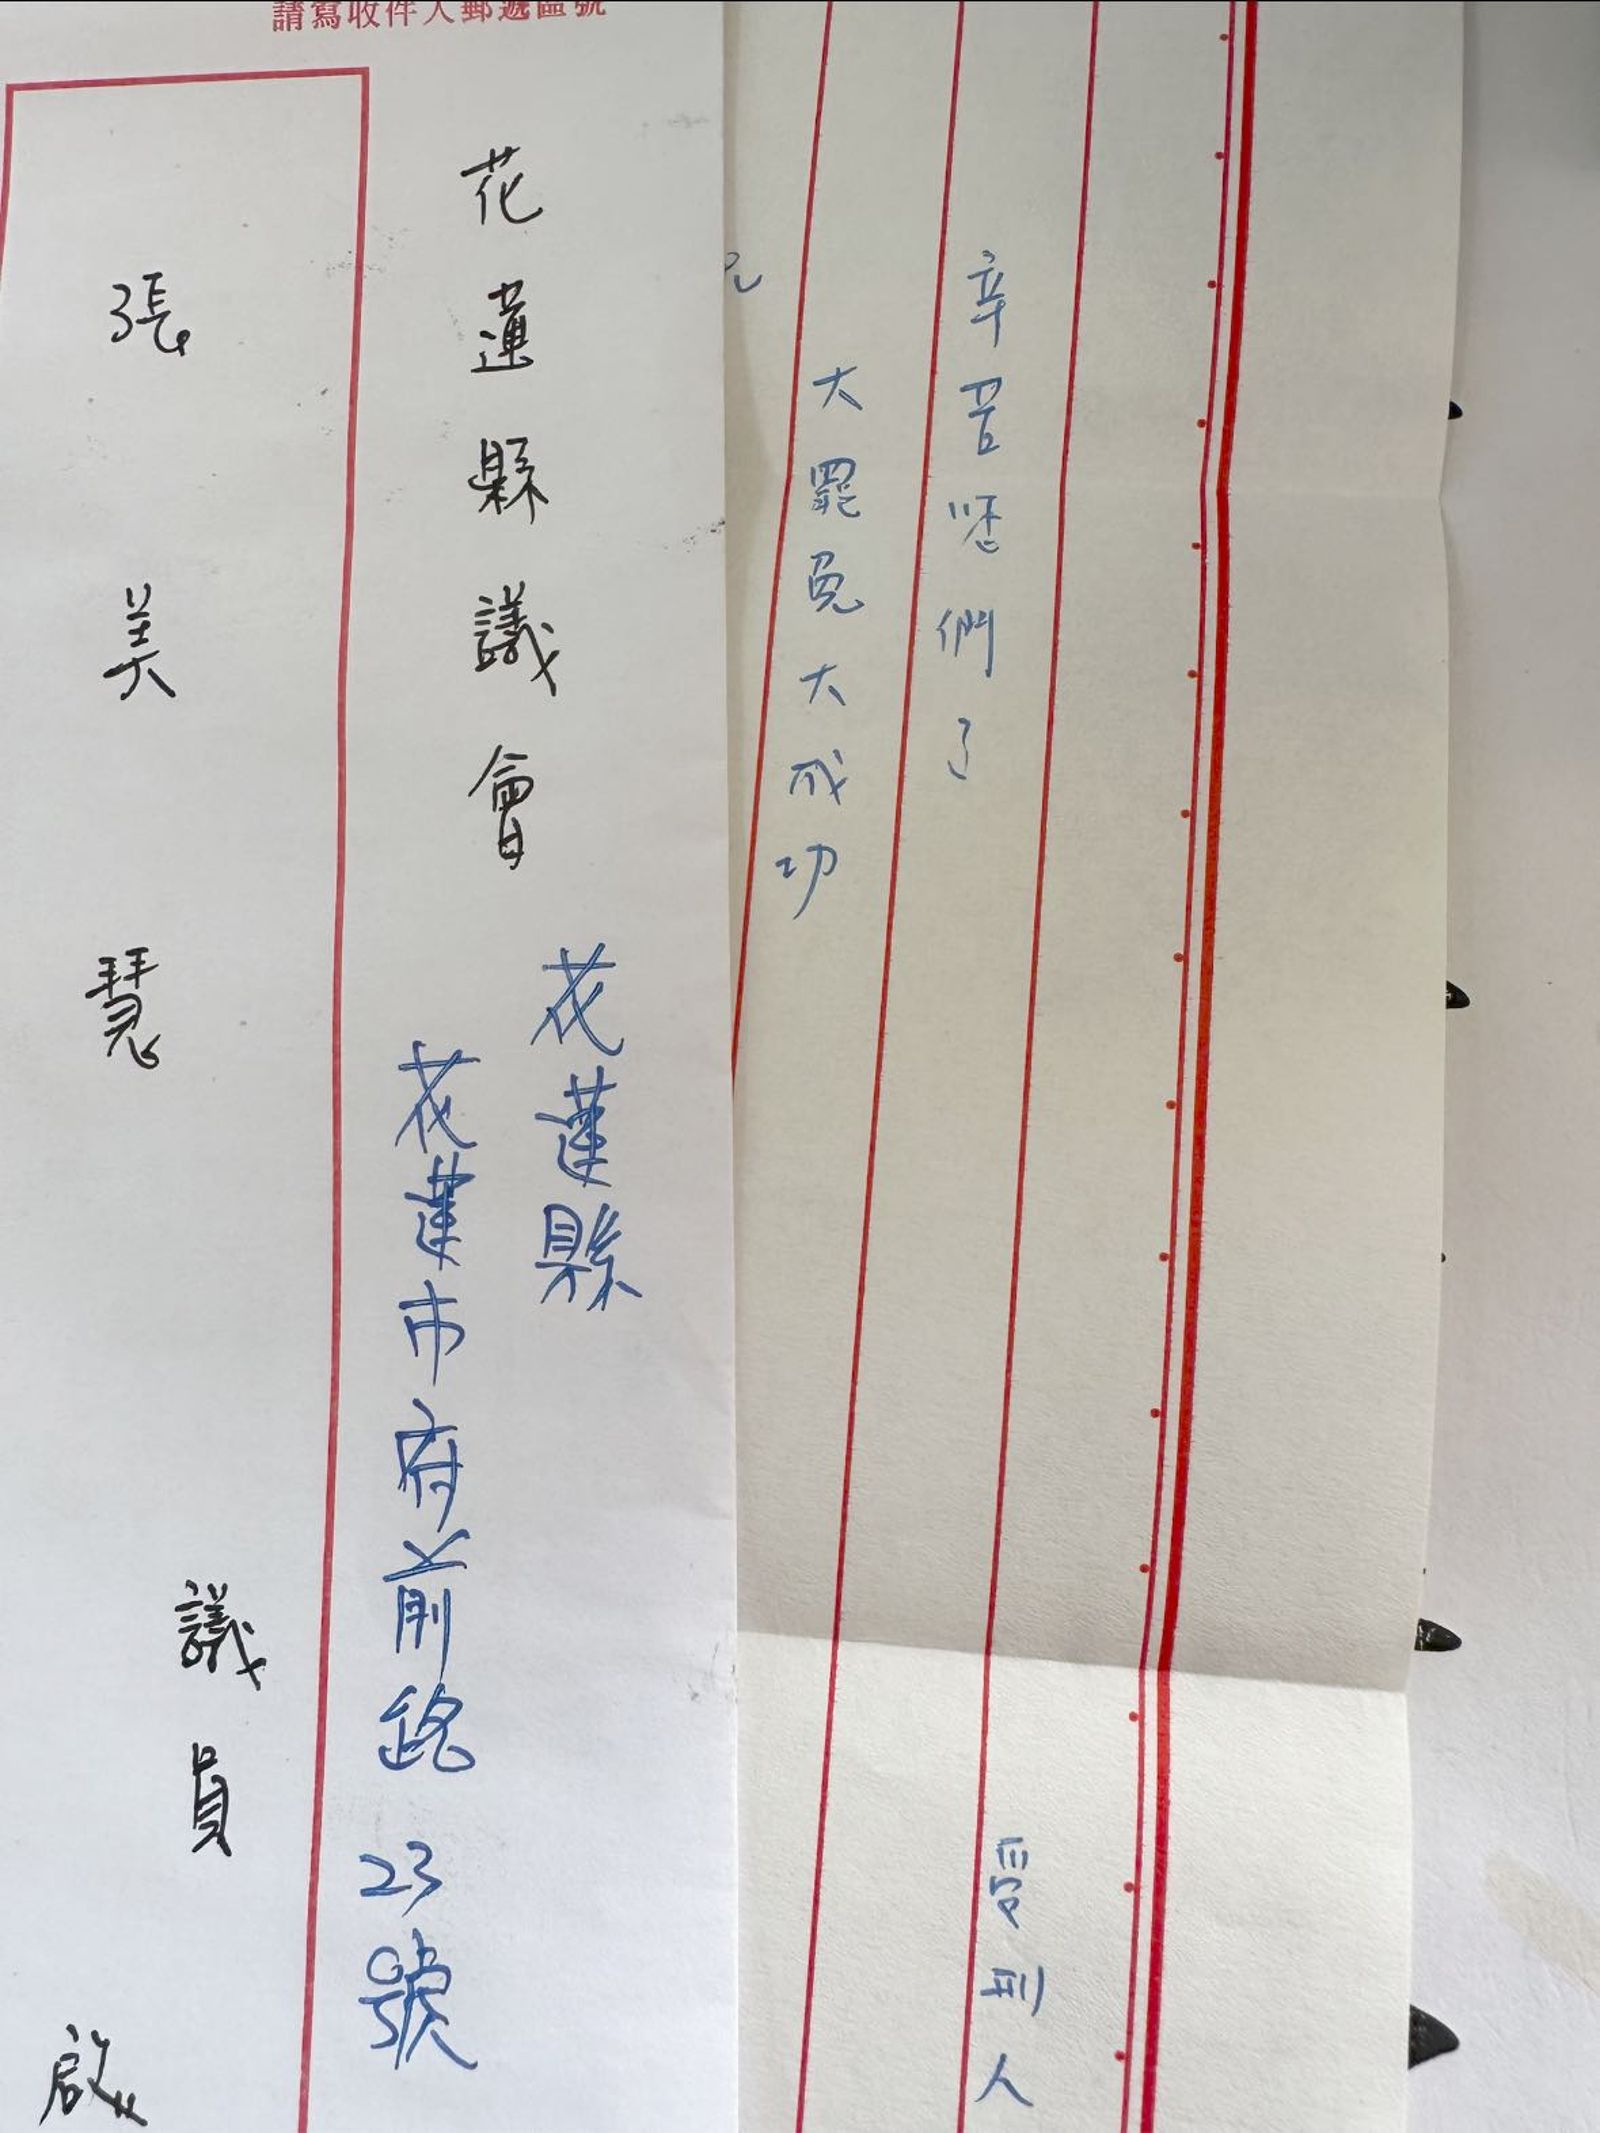 請寫收件人郵遞區號
花蓮縣議會
花蓮縣
花蓮市府前路23號
張美慧
議員
啟
辛苦您們了
受刑人
大罷免大成功